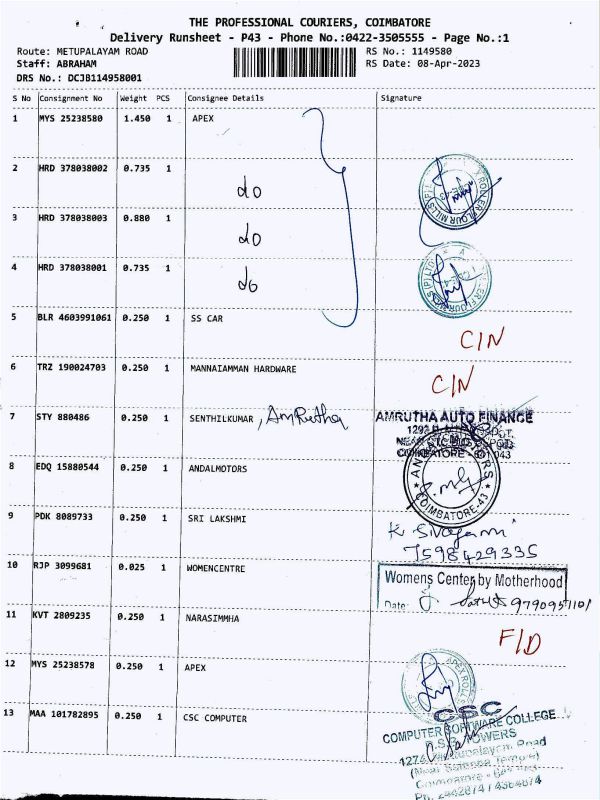 THE PROFESSIONAL COURIERS, COIMBATORE
Delivery Runsheet - P43 - Phone No.:0422-3505555 - Page No.:1
Route: METUPALAYAM ROAD RS No.: 1149580
Staff: ABRAHAM RS Date: 08-Apr-2023
DRS No.: DCJB114958001
S No Consignment No Weight PCS Consignee Details Signature
1 MYS 25238580 1.450 1 APEX
2 HRD 378038002 0.735 1 do
ROLLER FLOUR MILLS
3 HRD 378038003 0.880 1 do
4 HRD 378038001 0.735 1 do
5 BLR 4603991061 0.250 1 SS CAR C/N
6 TRZ 190024703 0.250 1 MANNAIAMMAN HARDWARE C/N
7 STY 880486 0.250 1 SENTHILKUMAR, AmRutha AMRUTHA AUTO FINANCE
COIMBATORE
8 EDQ 15880544 0.250 1 ANDALMOTORS
COIMBATORE-43
9 PDK 8089733 0.250 1 SRI LAKSHMI K Sivagami
7598429335
10 RJP 3099681 0.025 1 WOMENCENTRE Womens Center by Motherhood
Date:
11 KVT 2809235 0.250 1 NARASIMMHA F/D
12 MYS 25238578 0.250 1 APEX
13 MAA 101782895 0.250 1 CSC COMPUTER CSC
COMPUTER SOFTWARE COLLEGE
TOWERS
Road